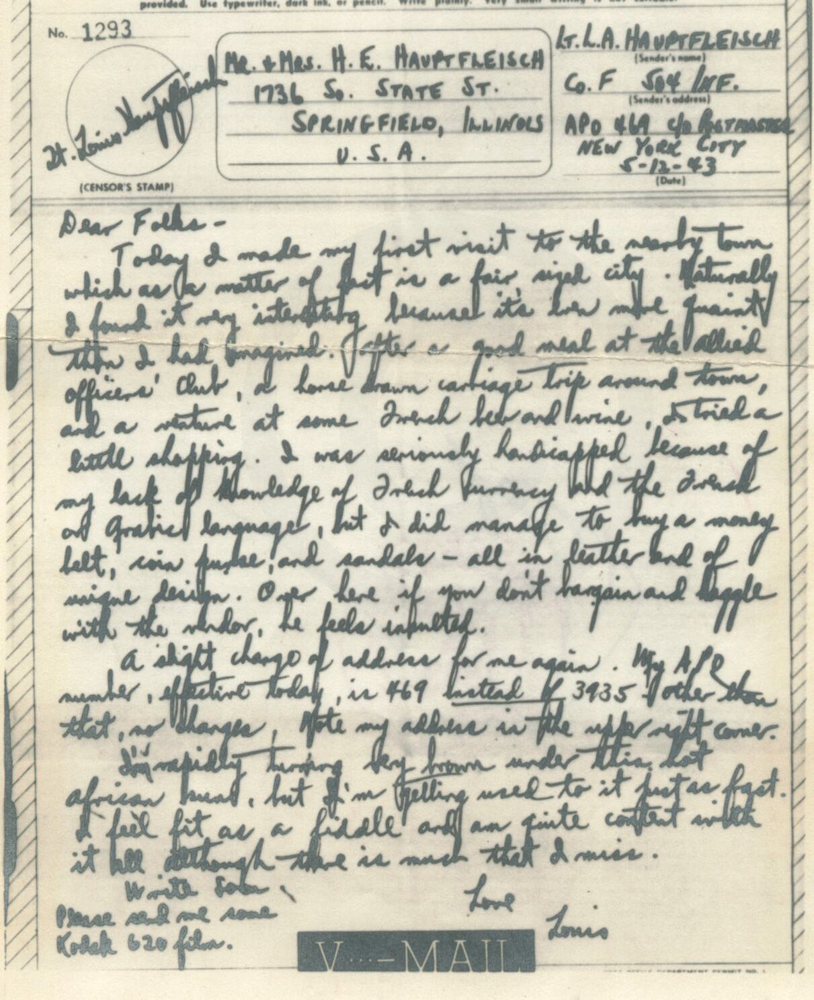 provided. Use typewriter, dark ink, or pencil. Write plainly. Very small writing is not suitable.
No. 1293
Lt. Louis Hauptfleisch
(CENSOR'S STAMP)
MR. & MRS. H. E. HAUPTFLEISCH
1736 SO. STATE ST.
SPRINGFIELD, ILLINOIS
U. S. A.
LT. L. A. HAUPTFLEISCH
(Sender's name)
CO. F 504 INF.
(Sender's address)
APO 469 c/o POSTMASTER
NEW YORK CITY
5-12-43
(Date)
Dear Folks -
Today I made my first visit to the nearby town
which as a matter of fact is a fair sized city. Naturally
I found it very interesting because it's even more quaint
than I had imagined. After a good meal at the allied
officers' Club, a horse drawn carriage trip around town,
and a venture at some French beer and wine, I tried a
little shopping. I was seriously handicapped because of
my lack of knowledge of French currency and the French
or Arabic language, but I did manage to buy a money
belt, coin purse, and sandals - all in leather and of
unique design. Over here if you don't bargain and haggle
with the vendor, he feels insulted.
A slight change of address for me again. My APO
number, effective today, is 469 instead of 3935 - other than
that, no changes. Note my address in the upper right corner.
I'm rapidly turning very brown under this hot
african sun, but I'm getting used to it just as fast.
I feel fit as a fiddle and am quite content with
it all although there is much that I miss.
Write Soon.
Please send me some
Kodak 620 film.
Love
Louis
V···—MAIL